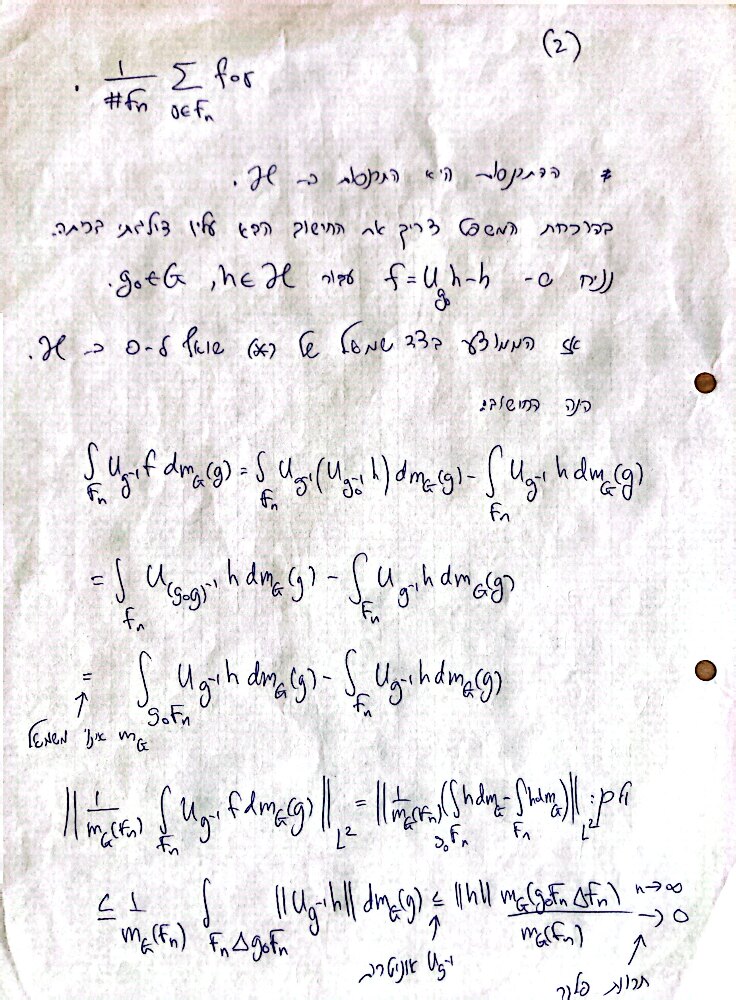 (2)
. \frac{1}{\#F_n} \sum_{σ∈F_n} f∘σ
* ההתכנסות היא התכנסות ב- ℋ.
בהוכחת המשפט צריך את החישוב הבא עליו דילגתי בכתה.
נניח ש- f = U_{g_0} h - h עבור g_0 ∈ G, h ∈ ℋ.
אז הממוצע בצד שמאל של שואף ל-0 ב- ℋ.
הנה החישוב:
∫_{F_n} U_{g^{-1}} f dm_G(g) = ∫_{F_n} U_{g^{-1}}(U_{g_0^{-1}} h) dm_G(g) - ∫_{F_n} U_{g^{-1}} h dm_G(g)
= ∫_{F_n} U_{(g_0 g)^{-1}} h dm_G(g) - ∫_{F_n} U_{g^{-1}} h dm_G(g)
= ∫_{g_0 F_n} U_{g^{-1}} h dm_G(g) - ∫_{F_n} U_{g^{-1}} h dm_G(g)
↑
m_G אינו' משמאל
ולכן: ‖\frac{1}{m_G(F_n)} ∫_{F_n} U_{g^{-1}} f dm_G(g)‖_{L^2} = ‖\frac{1}{m_G(F_n)} (∫_{g_0 F_n} h dm_G - ∫_{F_n} h dm_G)‖_{L^2}
≤ \frac{1}{m_G(F_n)} ∫_{F_n Δ g_0 F_n} ‖U_{g^{-1}} h‖ dm_G(g) ≤ ‖h‖ \frac{m_G(g_0 F_n Δ F_n)}{m_G(F_n)} \xrightarrow{n→∞} 0
↑ ↑
U_{g^{-1}} אוניטרי תכונת פלנר